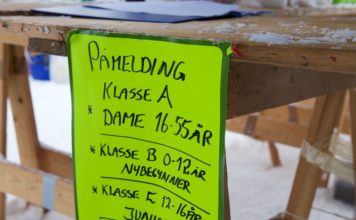 PÅMELDING
KLASSE A
* DAME 16-55ÅR
* KLASSE B 0-12ÅR
NYBEGYNNER
* KLASSE C 12-16ÅR
JUNIO